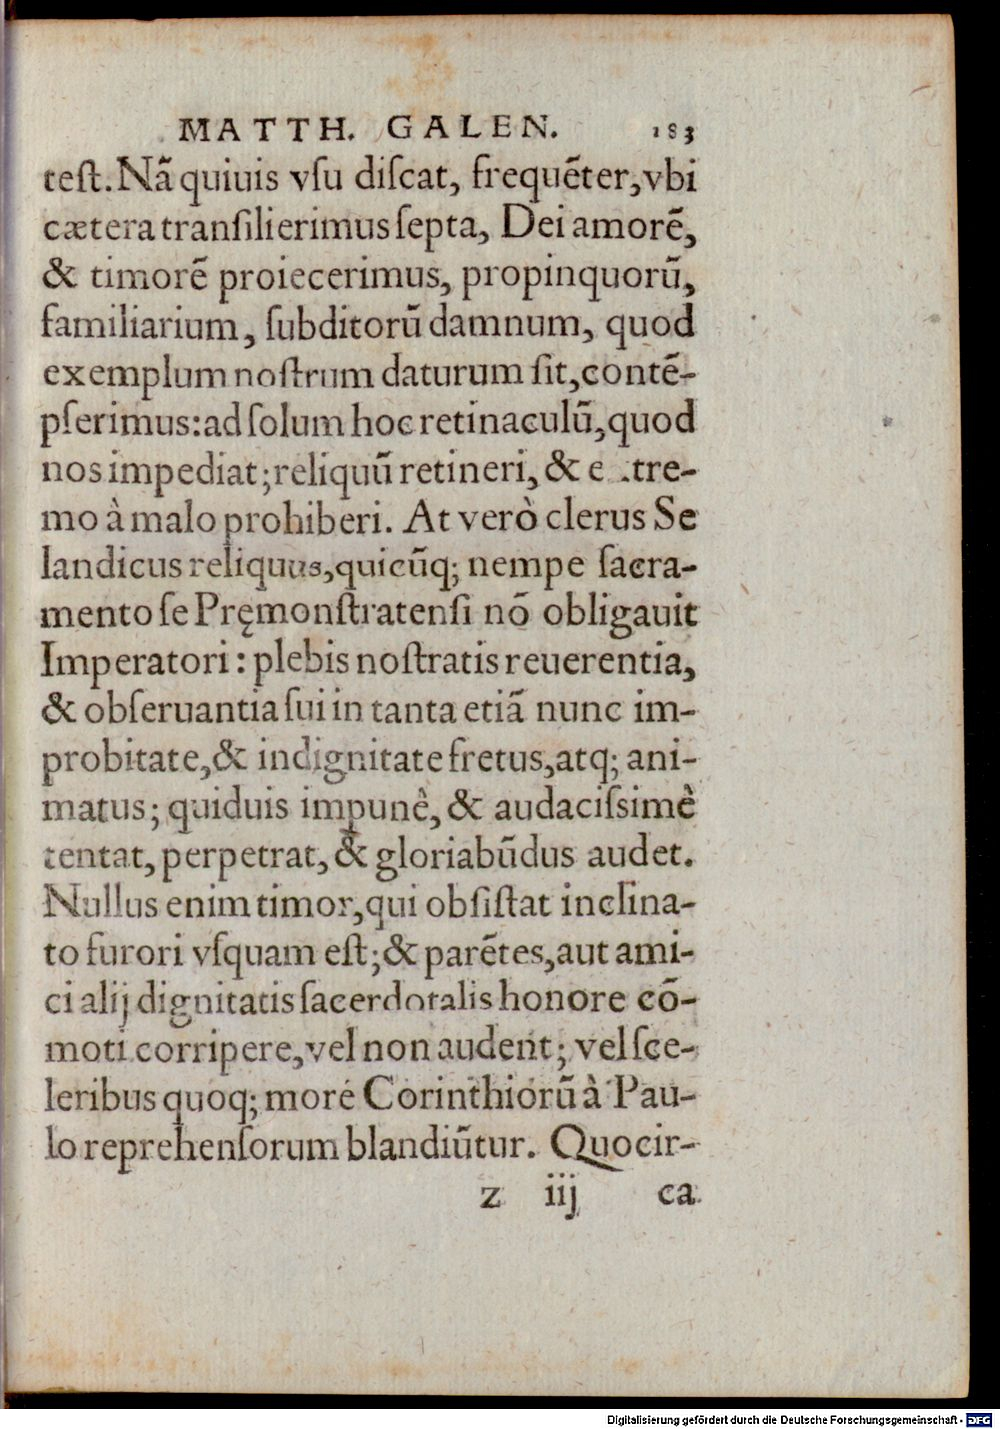 MATTH. GALEN. 183
test. Nã quiuis vsu discat, frequẽter, vbi
cætera transilierimus septa, Dei amorẽ,
& timorẽ proiecerimus, propinquorũ,
familiarium, subditorũ damnum, quod
exemplum nostrum daturum sit, contẽ-
pserimus: ad solum hoc retinaculũ, quod
nos impediat; reliquũ retineri, & e..tre-
mo à malo prohiberi. At verò clerus Se
landicus reliquus, quicũq; nempe sacra-
mento se Pręmonstratensi nõ obligauit
Imperatori: plebis nostratis reuerentia,
& obseruantia sui in tanta etiã nunc im-
probitate, & indignitate fretus, atq; ani-
matus; quiduis impunè, & audacissimè
tentat, perpetrat, & gloriabũdus audet.
Nullus enim timor, qui obsistat inclina-
to furori vsquam est; & parẽtes, aut ami-
ci alij dignitatis sacerdotalis honore cõ-
moti corripere, vel non audent; vel sce-
leribus quoq; more Corinthiorũ à Pau-
lo reprehensorum blandiũtur. Quocir-
z iij ca
Digitalisierung gefördert durch die Deutsche Forschungsgemeinschaft - DFG